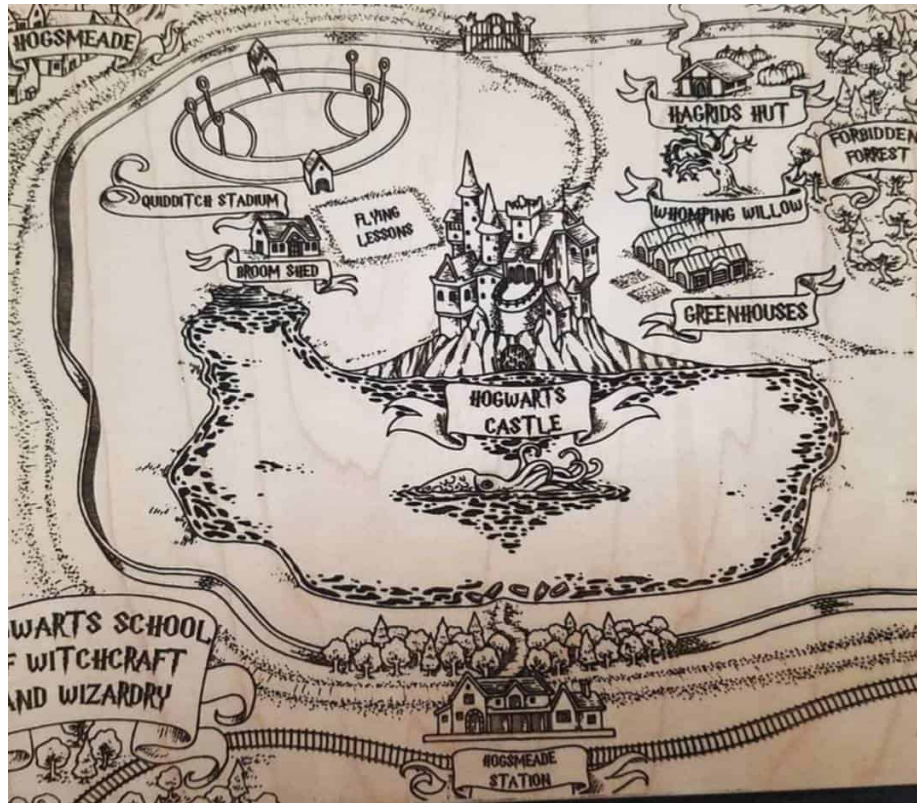 HOGSMEADE
HAGRIDS HUT
FORBIDDEN
FORREST
QUIDDITCH STADIUM
FLYING
LESSONS
WHOMPING WILLOW
BROOM SHED
GREENHOUSES
HOGWARTS
CASTLE
WARTS SCHOOL
F WITCHCRAFT
AND WIZARDRY
HOGSMEADE
STATION